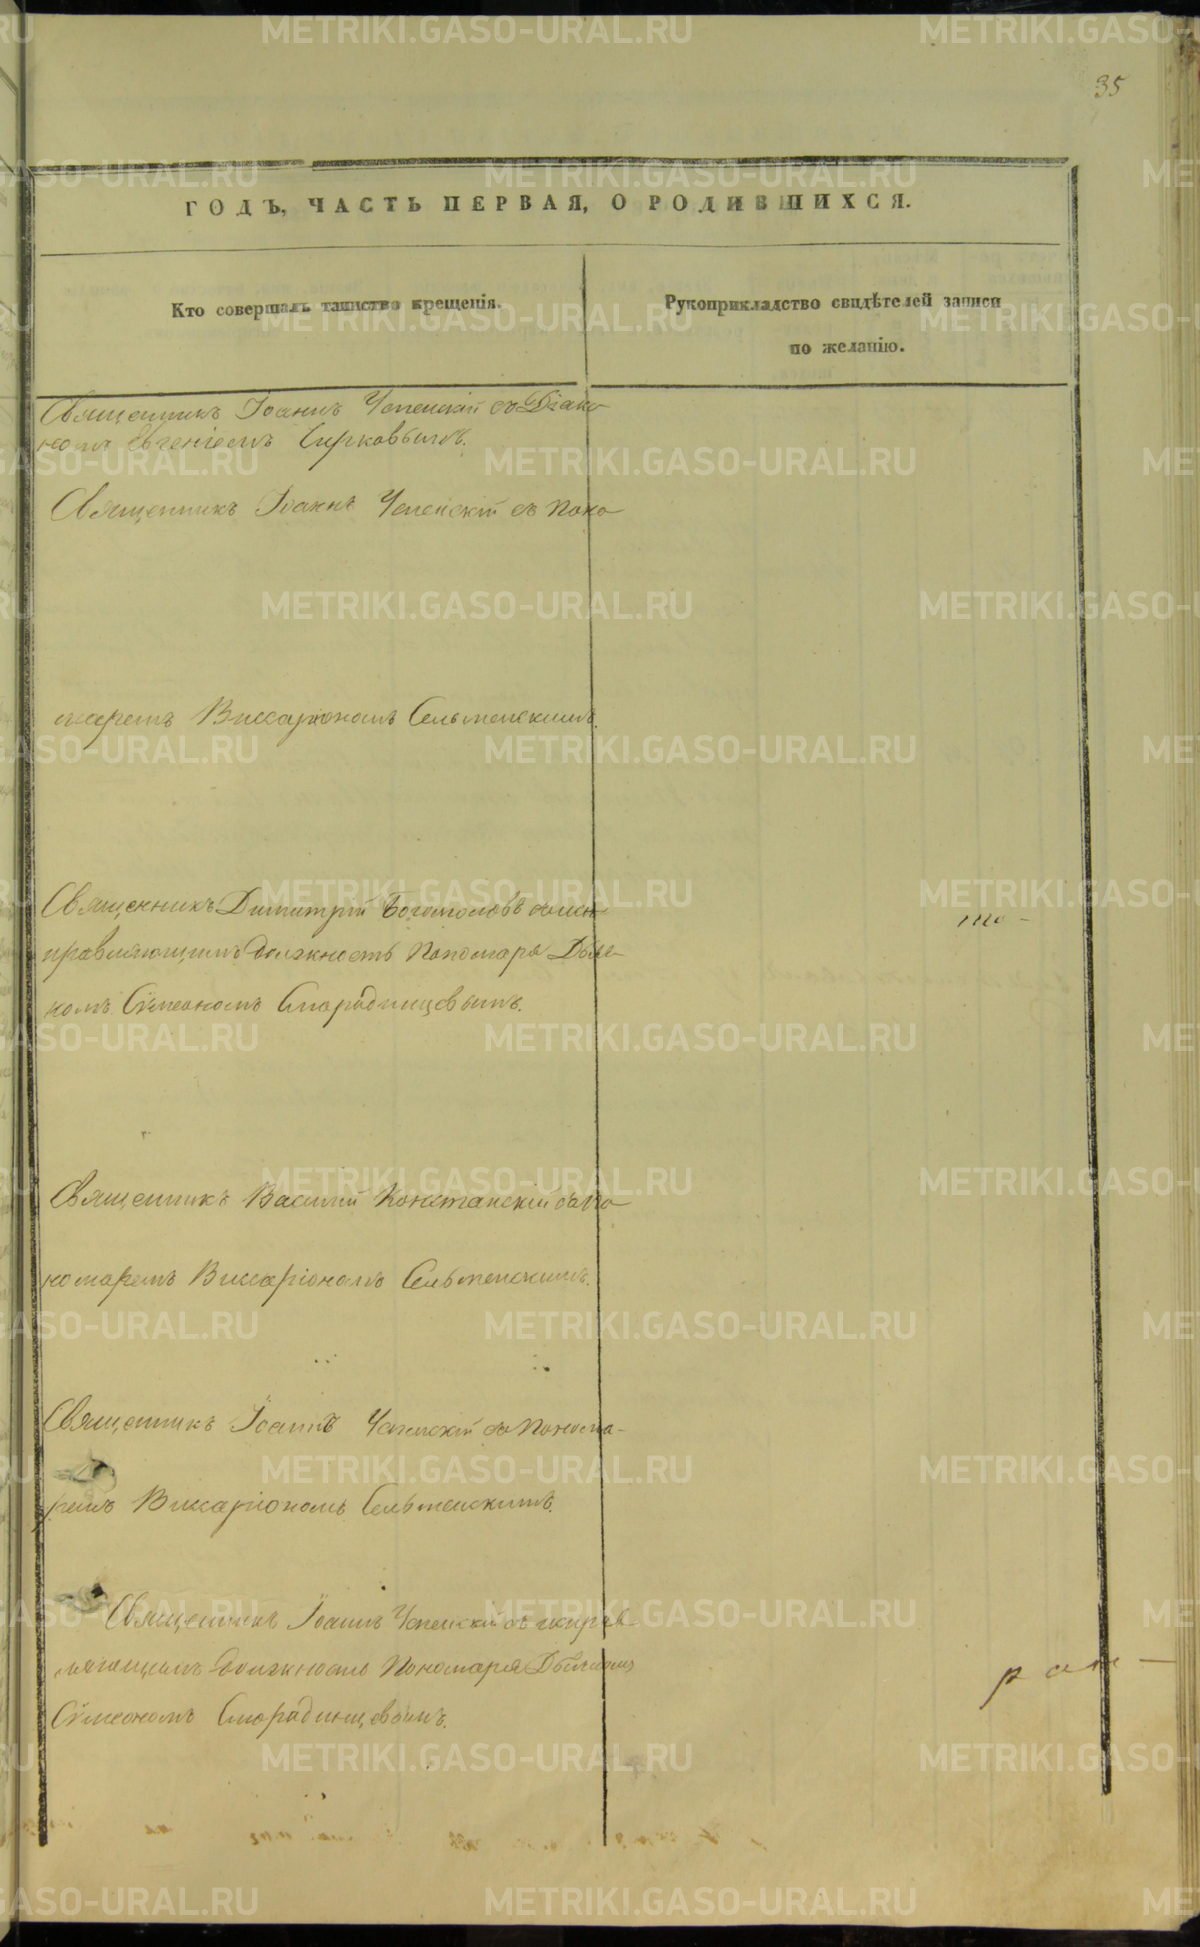 35
ГОДЪ, ЧАСТЬ ПЕРВАЯ, О РОДИВШИХСЯ.
Кто совершалъ таинство крещенія.
Рукоприкладство свидѣтелей записи
по желанію.
Священникъ Іоаннъ Успенскій съ Діако
номъ Евгеніемъ
Священникъ Іоаннъ Успенскій съ Поно
маремъ Виссаріономъ Сельменскимъ.
Священникъ Димитрій Богомоловъ съ исп
правляющимъ должность Пономаря Дьяч
комъ Сѵмеономъ Смородинцевымъ.
Священникъ Василій Констанскій съ По
номаремъ Виссаріономъ Сельменскимъ.
Священникъ Іоаннъ Успенскій съ Понома-
ремъ Виссаріономъ Сельменскимъ.
Священникъ Іоаннъ Успенскій съ исправ-
ляющимъ должность Пономаря
Сѵмеономъ Смородинцевымъ.
METRIKI.GASO-URAL.RU